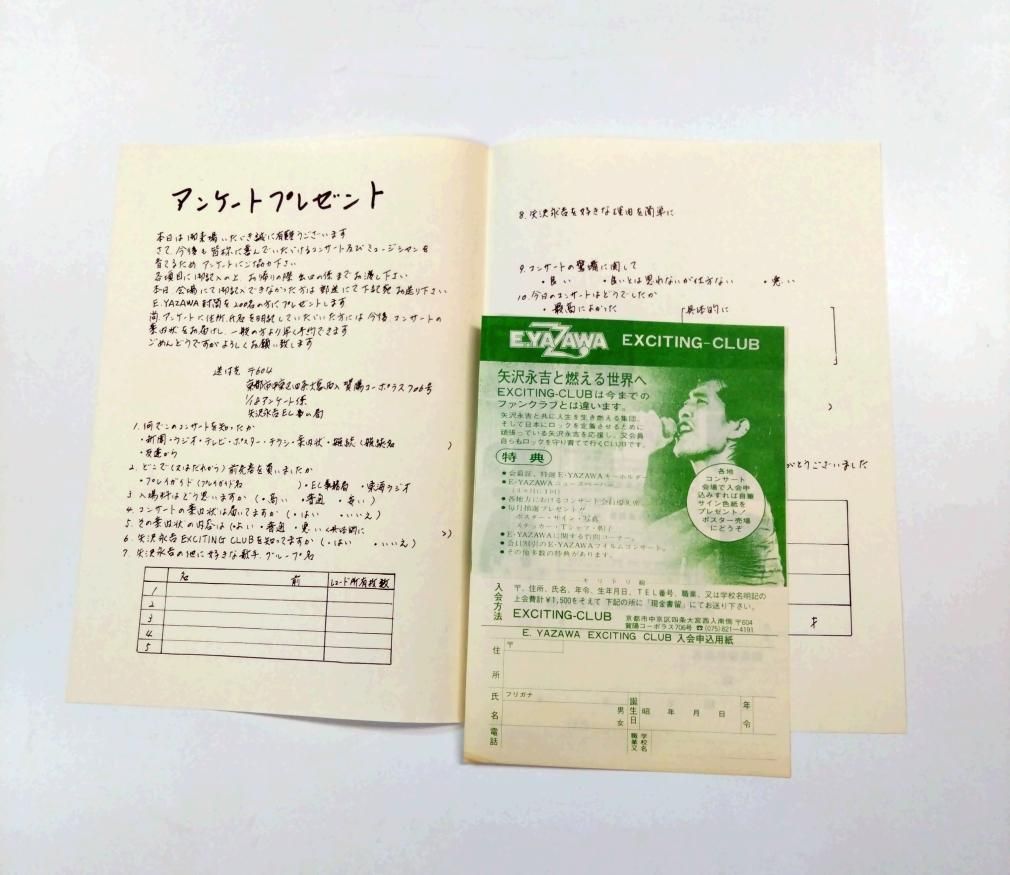 アンケートプレゼント
本日は御来場いただき誠に有難うございます
さて、今後も皆様に喜んでいただけるコンサート及びミュージシャンを
育てるため アンケートにご協力下さい
各項目に御記入の上 お帰りの際 出口の係までお渡し下さい
本日、会場にて御記入できなかった方は 郵送にて下記宛お送り下さい
E.YAZAWA 封筒を200名の方にプレゼントします
尚、アンケートに住所、氏名を明記していただいた方には 今後、コンサートの
案内状をお届けし、一般の方より早く予約できます
ごめんどうですがよろしくお願い致します
送付先 〒604
京都市中京区四条大宮西入 賀陽コーポラス706号
アンケート係
矢沢永吉EL事ム局
1. 何でこのコンサートを知ったか
・新聞・ラジオ・テレビ・ポスター・チラシ・案内状・雑誌(雑誌名 )
・友達から
2. どこで(又はだれから)前売券を買いましたか
・プレイガイド(プレイガイド名 )・EL事務局 ・東海ラジオ
3. 入場料はどう思いますか (・高い ・普通 ・安い)
4. コンサートの案内状は届いてますか (・はい ・いいえ)
5. その案内状の内容は (・よい ・普通 ・悪い (具体的に ))
6. 矢沢永吉 EXCITING CLUBを知ってますか (・はい ・いいえ)
7. 矢沢永吉の他に好きな歌手、グループ名
名 前 レコード所有枚数
1
2
3
4
5
8. 矢沢永吉を好きな理由を簡単に
9. コンサートの警備に関して
・良い ・良いとは思わないが仕方ない ・悪い
10. 今日のコンサートはどうでしたか
・最高によかった 具体的に
)
がとうございました
才
E.YAZAWA EXCITING-CLUB
矢沢永吉と燃える世界へ
EXCITING-CLUBは今までの
ファンクラブとは違います。
矢沢永吉と共に人生を生き燃える集団、
そして日本にロックを定着させるために
頑張っている矢沢永吉を応援し、又会員
自らもロックを守り育てて行くCLUBです。
特典
●会員証、特製E・YAZAWAキーホルダー
●E・YAZAWAニュースペーパー
●各地方におけるコンサート会員優先席。
●毎月抽選プレゼント!!
ポスター・サイン・写真
ステッカー・Tシャツ・帽子
●E・YAZAWAに関する質問コーナー。
●会員割引のE・YAZAWAフイルムコンサート。
●その他多数の特典があります。
各地
コンサート
会場で入会申
込みすれば自筆
サイン色紙を
プレゼント!
ポスター売場
にどうぞ
キリトリ線
入会方法
〒、住所、氏名、年令、生年月日、TEL番号、職業、又は学校名明記の
上会費計¥1,500をそえて 下記の所に「現金書留」にてお送り下さい。
EXCITING-CLUB 京都市中京区四条大宮西入南側 〒604
賀陽コーポラス706号 ☎(075)821—4191
E. YAZAWA EXCITING CLUB 入会申込用紙
住所 〒
フリガナ
氏名 男 女 誕生日 昭 年 月 日 年令
電話 職業又 学校名